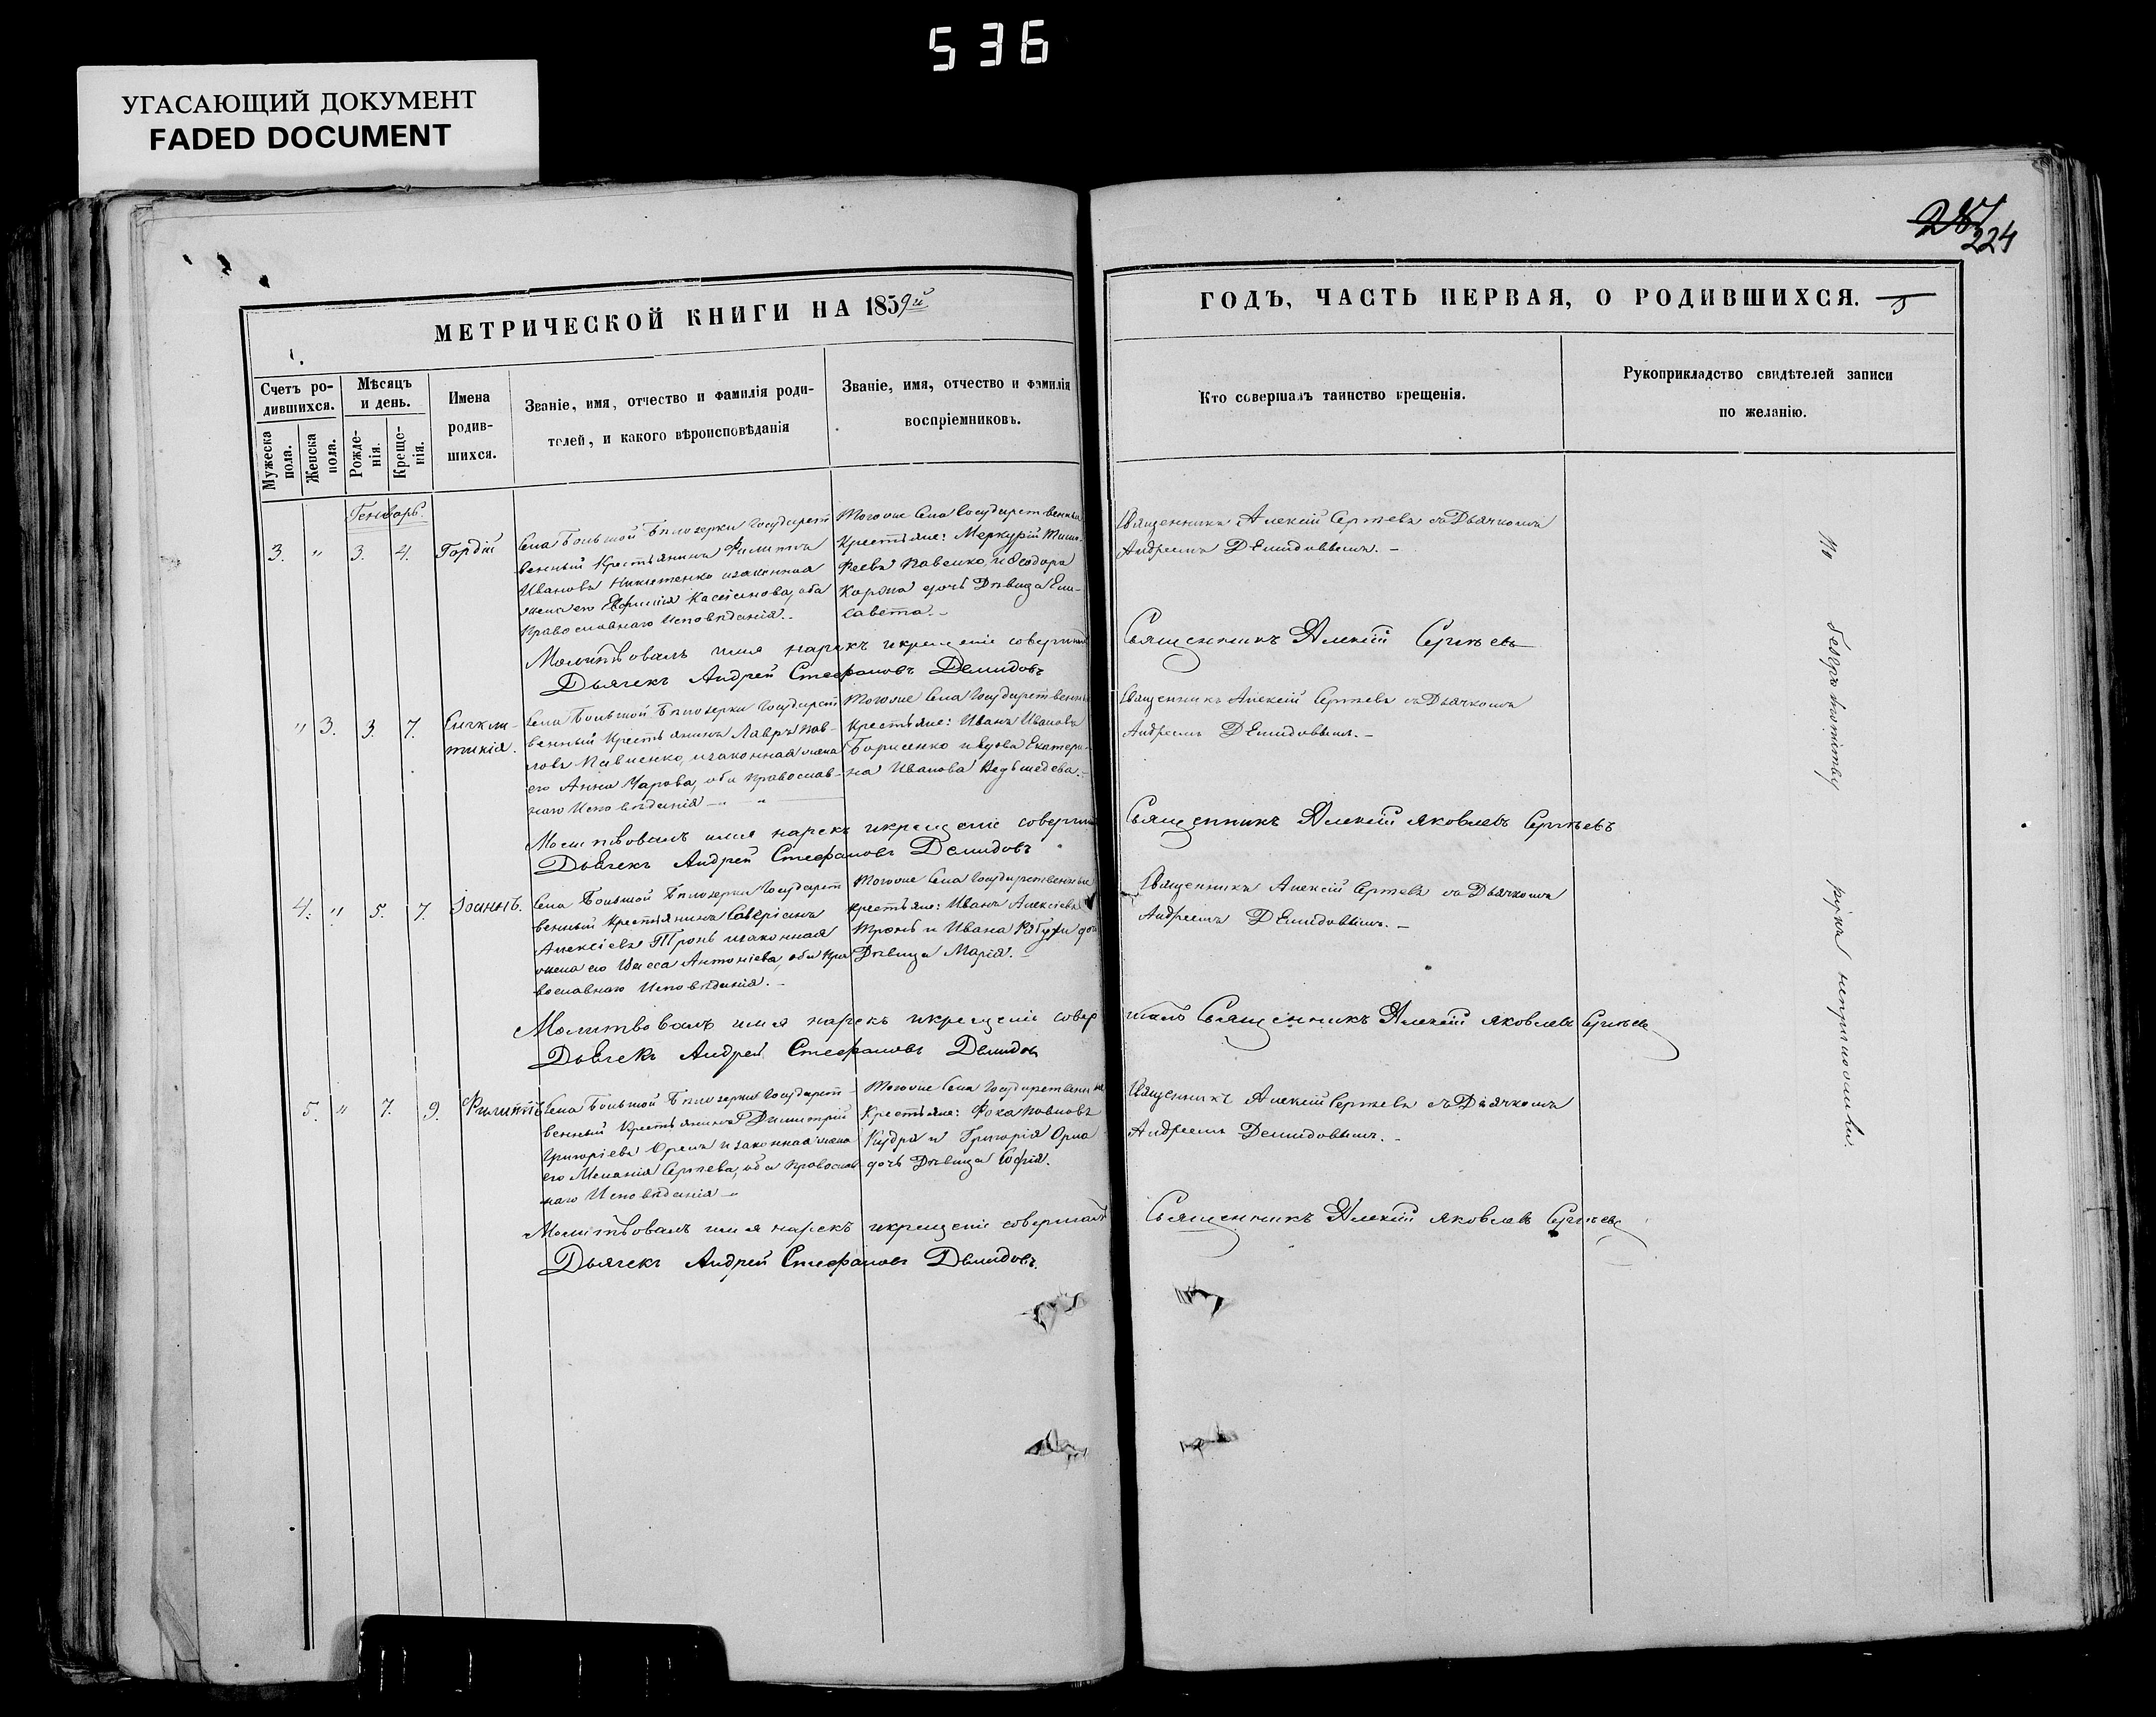 536
УГАСАЮЩИЙ ДОКУМЕНТ
FADED DOCUMENT
224
МЕТРИЧЕСКОЙ КНИГИ НА 1859й
ГОДЪ, ЧАСТЬ ПЕРВАЯ, О РОДИВШИХСЯ.
Счетъ ро-
дившихся.
Мужеска пола.
Женска пола.
Мѣсяцъ
и день.
Рожде-
нія.
Креще-
нія.
Имена
родив-
шихся.
Званіе, имя, отчество и фамилія роди-
телей, и какого вѣроисповѣданія
Званіе, имя, отчество и фамилія
воспріемниковъ.
Кто совершалъ таинство крещенія.
Рукоприкладство свидѣтелей записи
по желанію.
Генварь.
3. " 3. 4. Гордій
Села Большой Бѣлозерки Государст
венный Крестьянинъ Филиппъ
Ивановъ Никитенко и законная
жена его Касіанова, оба
Православнаго Исповѣданія.
Тогоже Села Государственные
Крестьяне: Меркурій Тимо-
феевъ Павленко, и Феодора
дочь Дѣвица Ели-
савета.
Священникъ Алексій Сергѣевъ съ Дьячкомъ
Андреемъ Демидовымъ.
Молитвовалъ имя нарекъ и крещеніе совершилъ
Священникъ Алексій Сергѣевъ
Дьячекъ Андрей Стефановъ Демидовъ
" 3. 3. 7. Синкли-
тикія.
Села Большой Бѣлозерки Государст
венный Крестьянинъ Лавръ Пав-
ловъ Павленко, и законная жена
его Анна оба Православ-
наго Исповѣданія
Тогоже Села Государственные
Крестьяне: Иванъ Ивановъ
Борисенко и вдова Екатери-
на Иванова
Священникъ Алексій Сергѣевъ съ Дьячкомъ
Андреемъ Демидовымъ.
Молитвовалъ имя нарекъ и крещеніе совершилъ
Священникъ Алексій Яковлевъ Сергѣевъ
Дьячекъ Андрей Стефановъ Демидовъ
4. " 5. 7. Іоаннъ.
Села Большой Бѣлозерки Государст
венный Крестьянинъ Саверіанъ
Алексіевъ Тронь и законная
жена его Васса Антоніева, оба Пра
вославнаго Исповѣданія.
Тогоже Села Государственные
Крестьяне: Иванъ Алексіевъ
Тронь и Ивана дочь
Дѣвица Марія.
Священникъ Алексій Сергѣевъ съ Дьячкомъ
Андреемъ Демидовымъ.
Молитвовалъ имя нарекъ и крещеніе совер
шилъ Священникъ Алексій Яковлевъ Сергѣевъ
Дьячекъ Андрей Стефановъ Демидовъ
5. " 7. 9. Филиппъ
Села Большой Бѣлозерки Государст-
венный Крестьянинъ Димитрій
Григоріевъ и законная жена
его Меланія Сергѣева, оба Православ
наго Исповѣданія
Тогоже Села Государственные
Крестьяне: Фока Павловъ
Кудря и Григорія
дочь Дѣвица Софія.
Священникъ Алексій Сергѣевъ съ Дьячкомъ
Андреемъ Демидовымъ.
Молитвовалъ имя нарекъ и крещеніе совершалъ
Священникъ Алексій Яковлевъ Сергѣевъ
Дьячекъ Андрей Стефановъ Демидовъ.
По безграмотству руки неприложили.